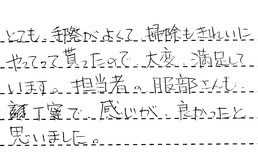 とても、手際がよくて、掃除もきれいに
やってって貰ったので、大変、満足して
います。担当者の、服部さんも、
丁寧で、感じが、良かったと
思いました。